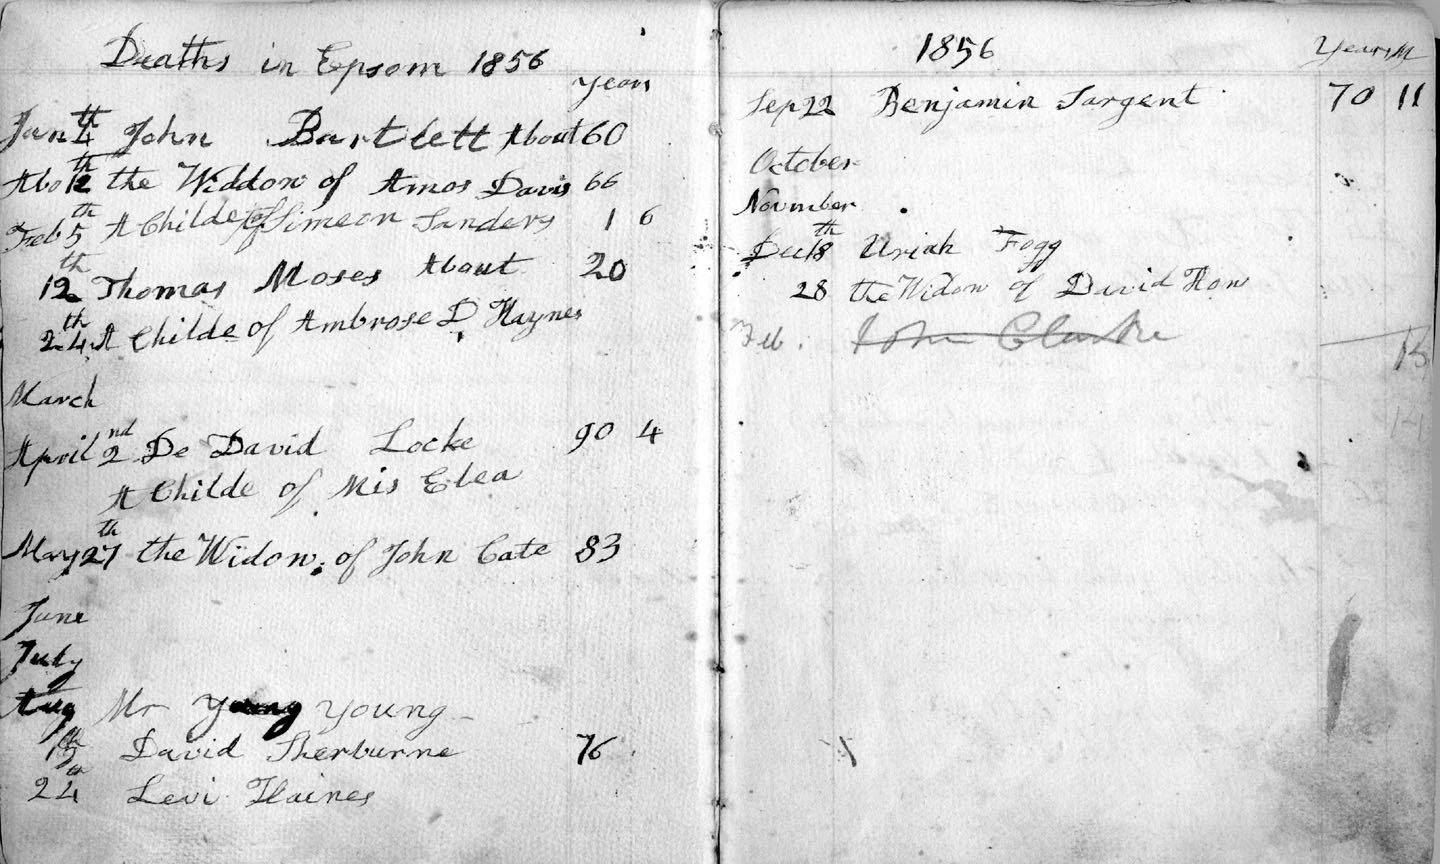 Deaths in Epsom 1856
years
Jan 4th John Bartlett About 60
Abo 12th the Widdow of Amos Davis 66
Feb 5th A Childe of Simeon Sanders 1 6
12th Thomas Moses About 20
24th A Childe of Ambrose D Haynes
March
April 2nd De David Locke 90 4
A Childe of Mis Elea
May 27th the Widow of John Cate 83
June
July
Aug Mr Young
15th David Sherburne 76
24th Levi Haines
1856
Years M
Sep 22 Benjamin Sargent 70 11
October
November
Dec 18th Uriah Fogg
28 the Widow of David How
Feb. John Clarke